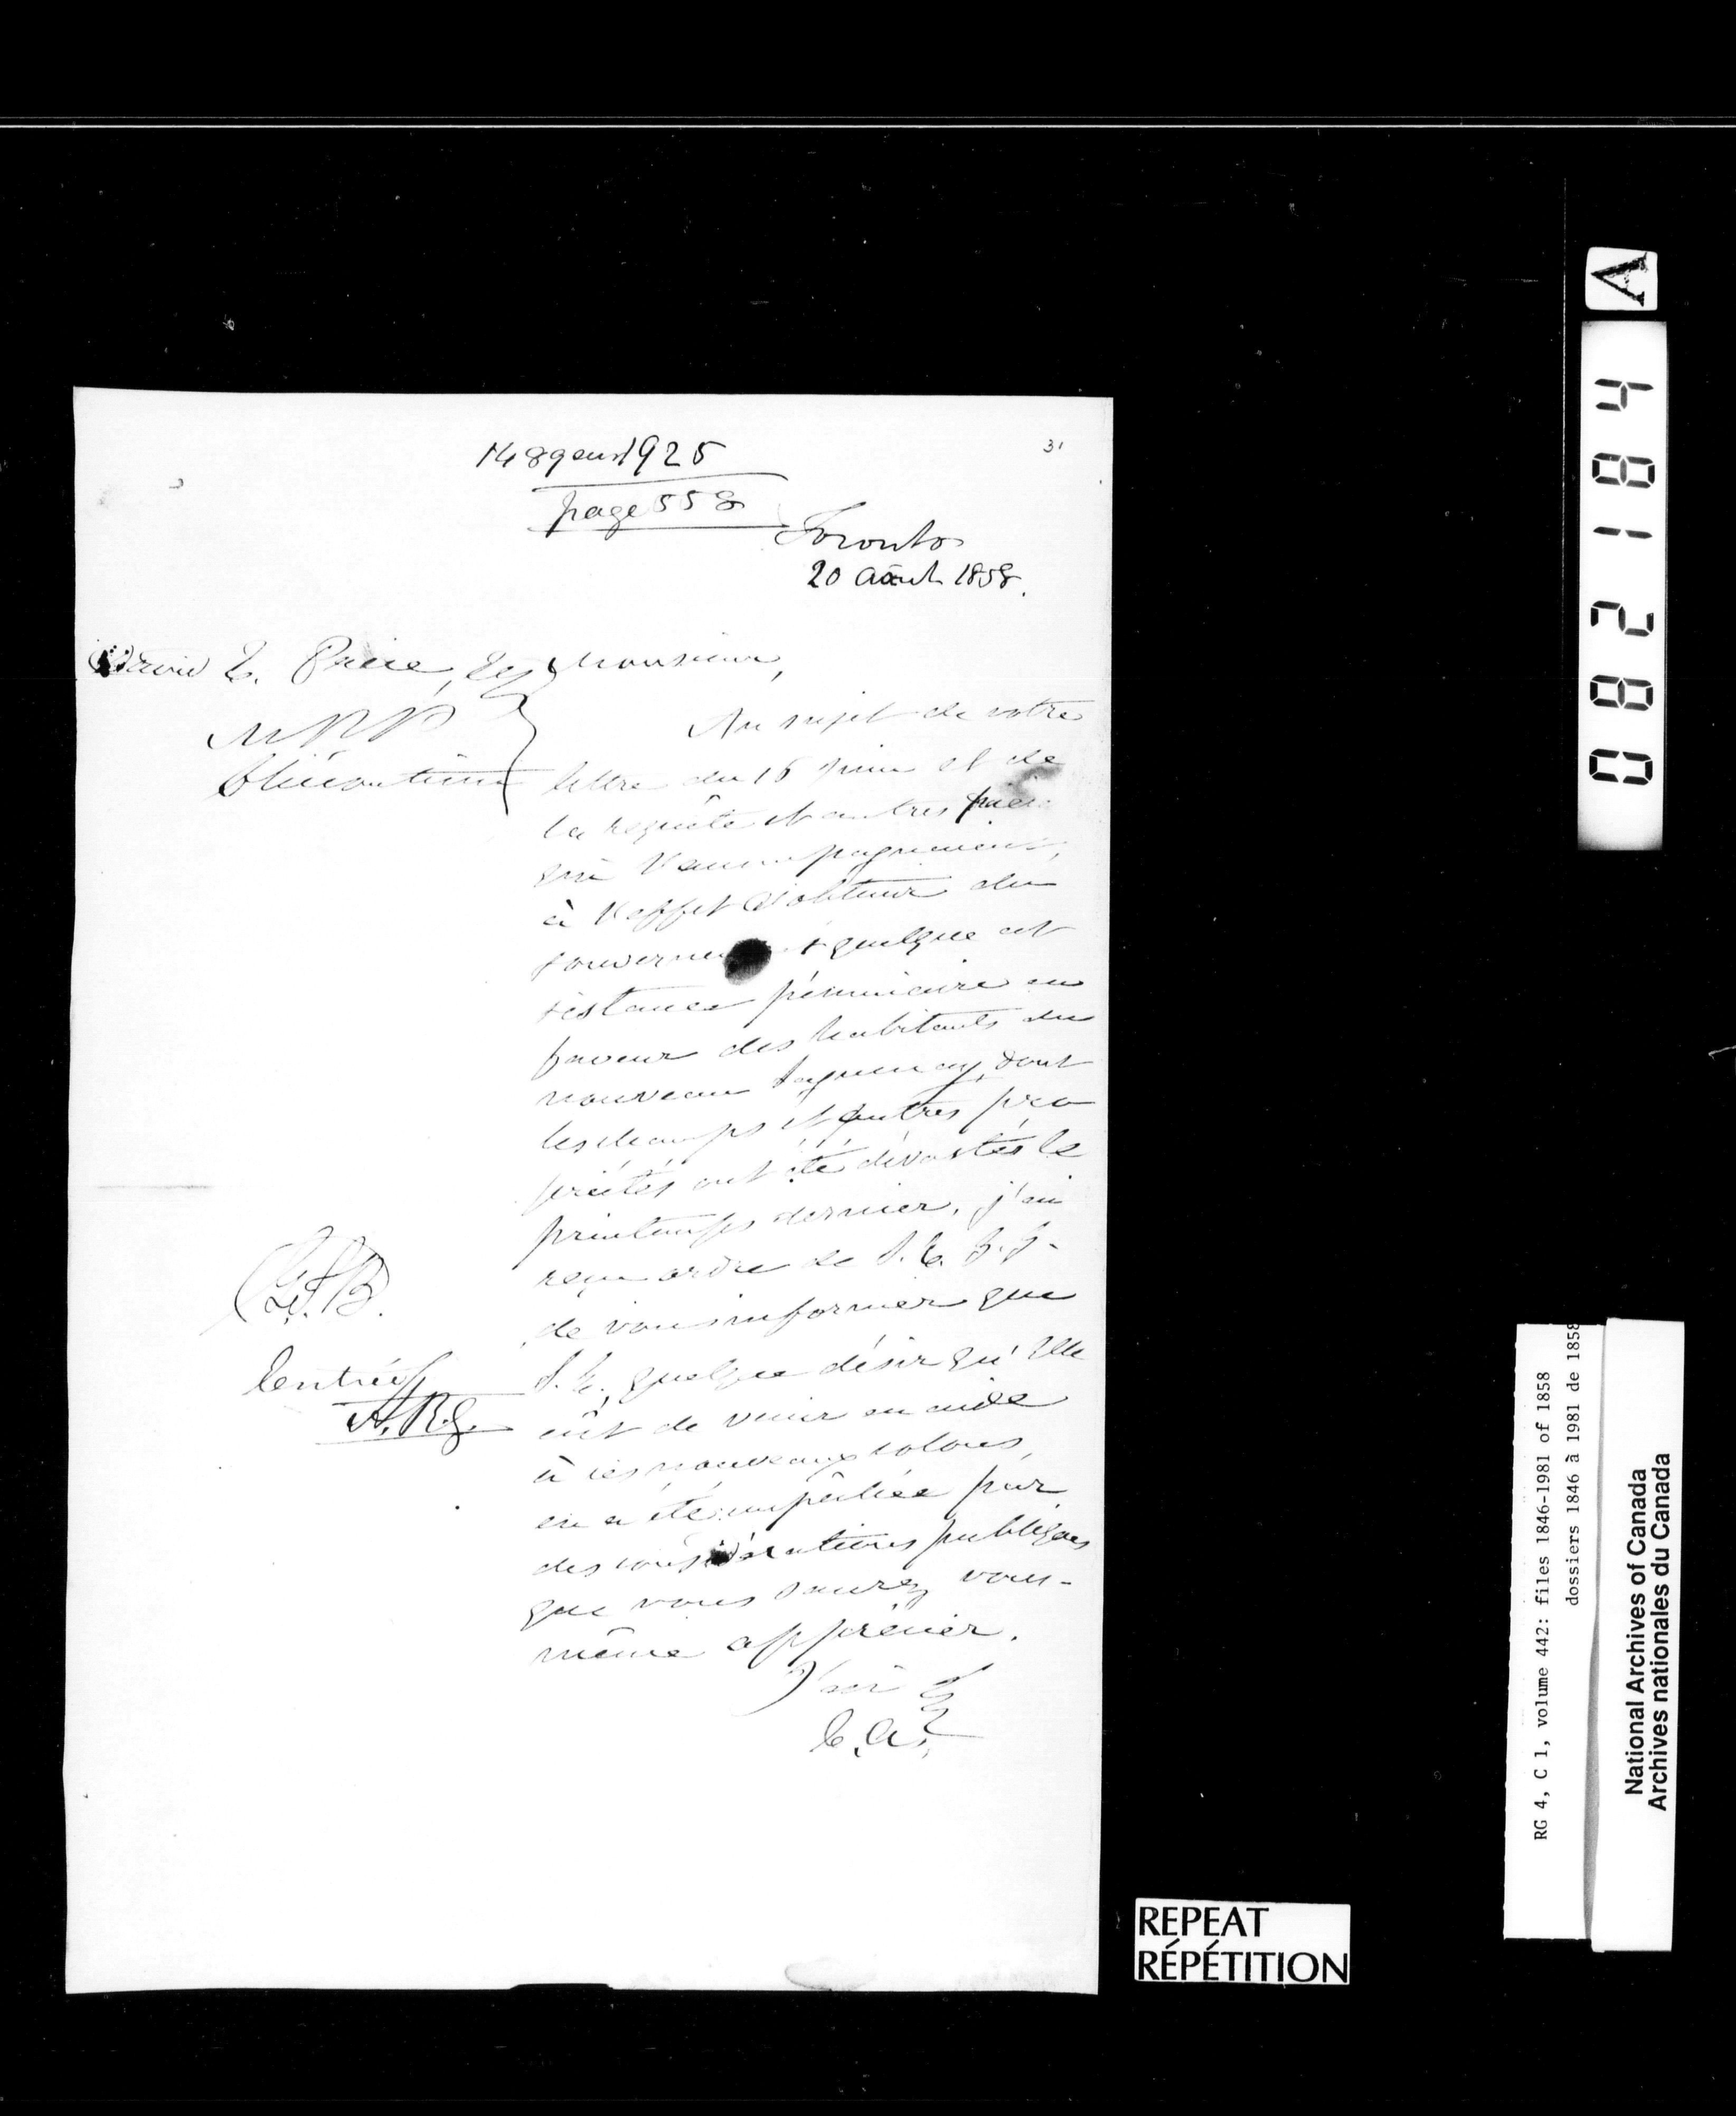 31
1489 sur 1925
page 558
Toronto
20 Août 1858.
David E. Price, Esq
M P P
Chicoutimi
Monsieur,
Au sujet de votre
lettre du 16 Juin et de
la requête et autres
qui l'accompagnaient,
à l'effet d'obtenir du
quelque as
sistance pécuniaire en
faveur des habitants du
nouveau Saguenay, dont
les champs et autres pro
priétés ont été dévastés le
printemps dernier, j'ai
reçu ordre de S. E.
de vous informer que
S. E., quelque désir qu'Elle
eût de venir en aide
à ces nouveaux colons,
en a été empêchée par
des considérations publiques
que vous saurez vous-
même apprécier.
J'ai &
C. A.
Entrée
A.R.G.
A
082184
RG 4, C 1, volume 442: files 1846-1981 of 1858
dossiers 1846 à 1981 de 1858
National Archives of Canada
Archives nationales du Canada
REPEAT
RÉPÉTITION